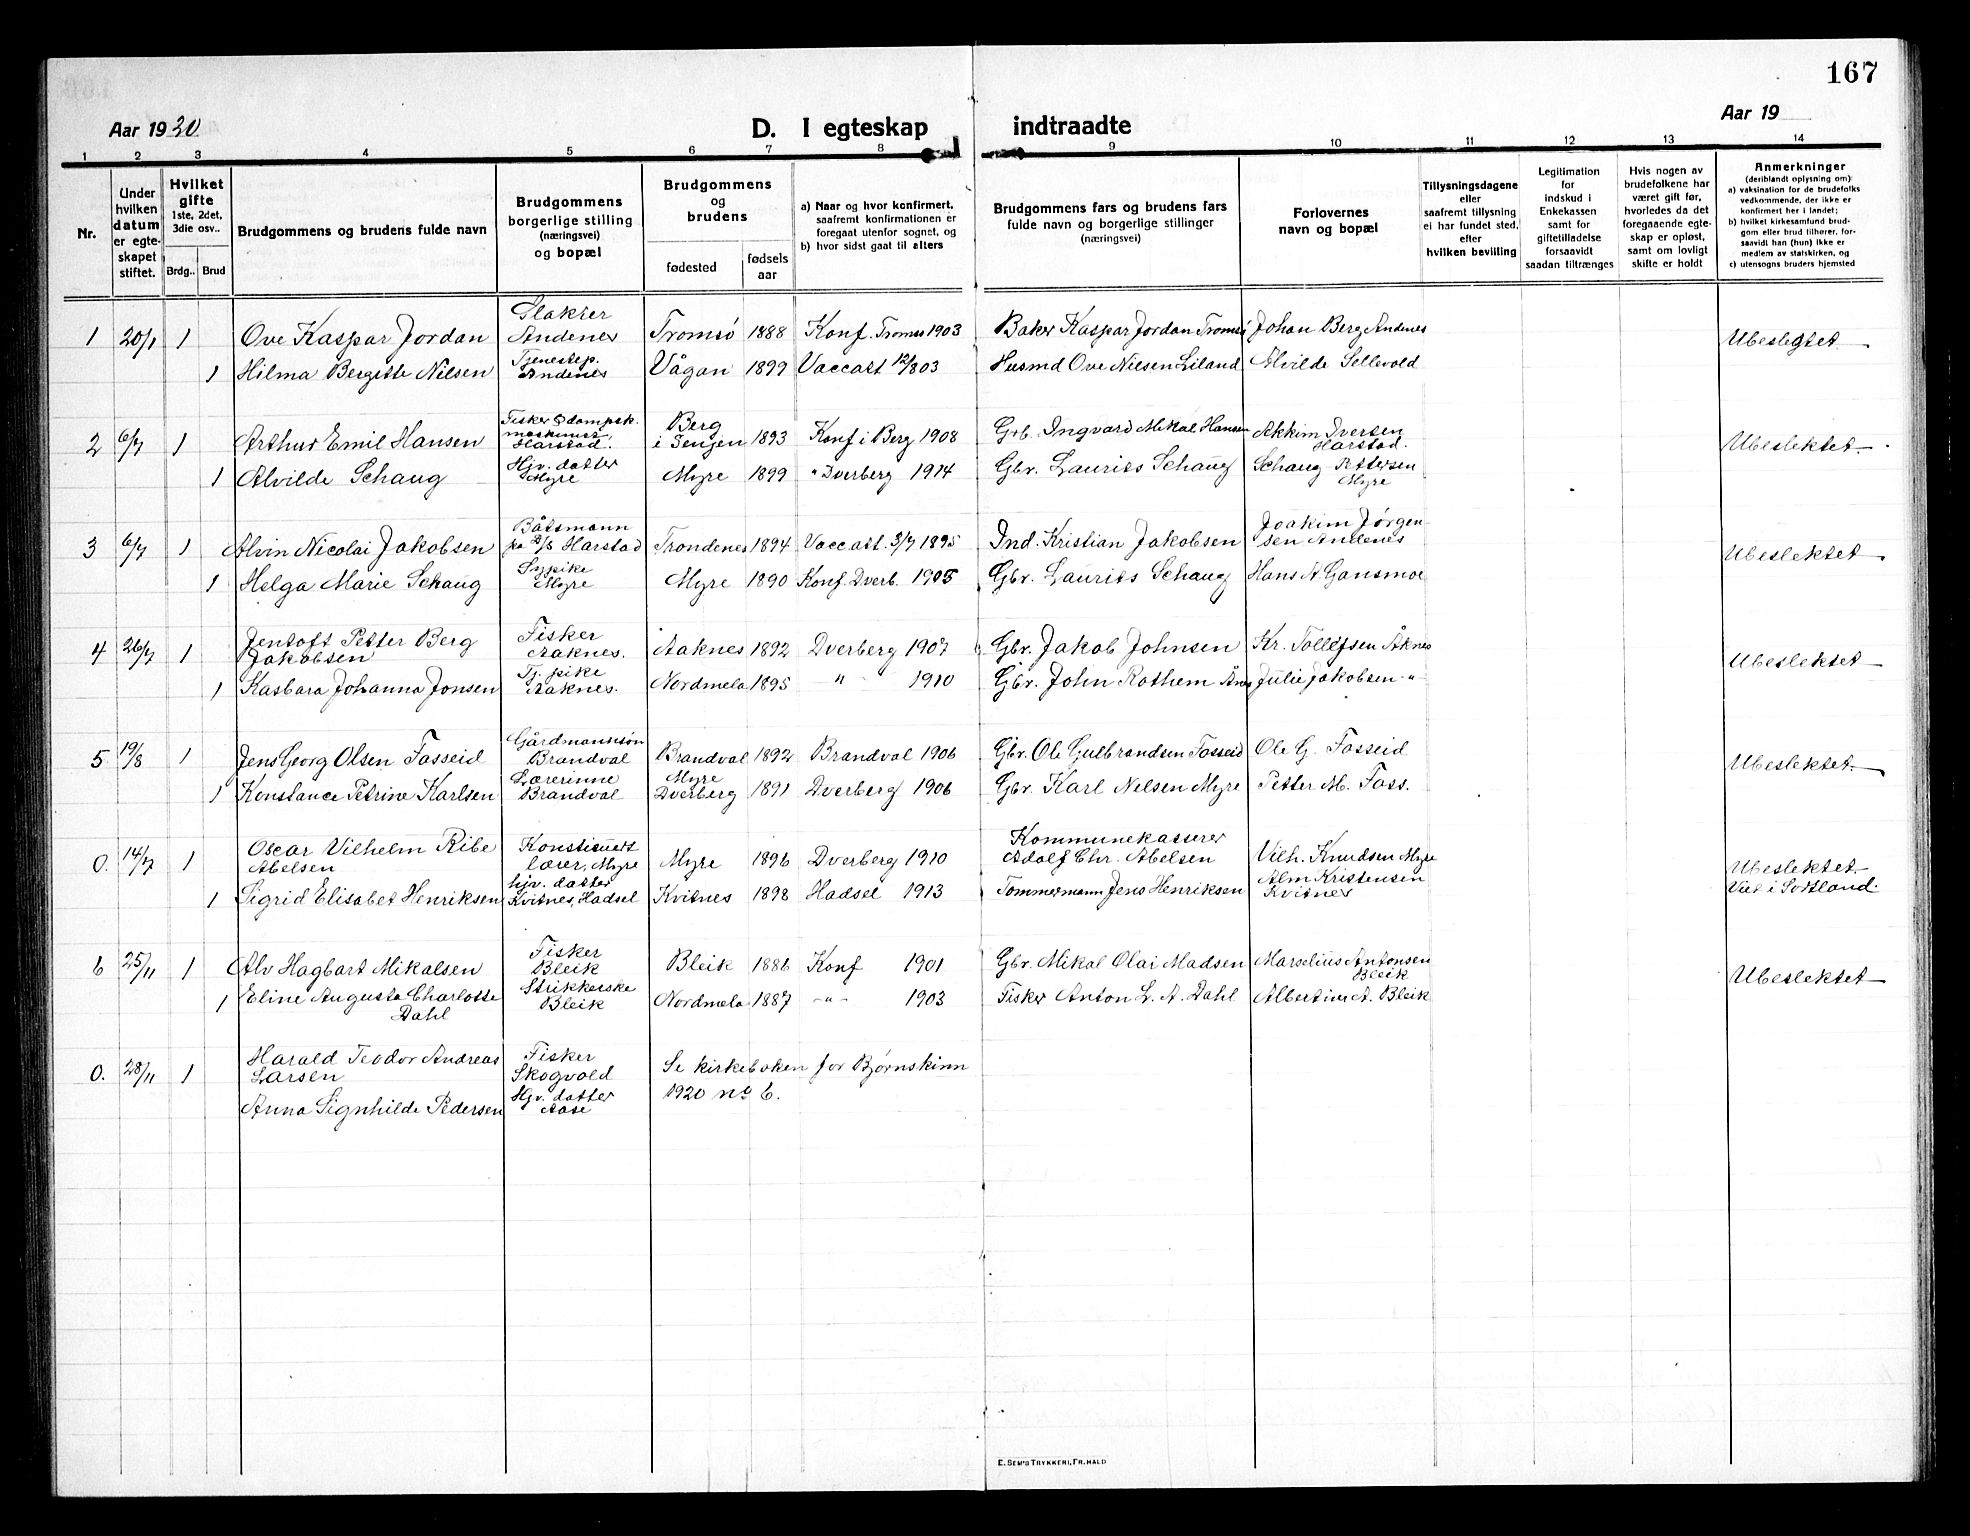 167
Aar 1920
D. I egteskap indtraadte
Aar 19
1 2 3 4 5 6 7 8 9 10 11 12 13 14
Nr.
Under hvilken datum er egteskapet stiftet.
Hvilket gifte 1ste, 2det, 3die osv..
Brdg.. Brud
Brudgommens og brudens fulde navn
Brudgommens borgerlige stilling (næringsvei) og bopæl
Brudgommens og brudens
fødested
fødselsaar
a) Naar og hvor konfirmert, saafremt konfirmationen er foregaat utenfor sognet, og
b) hvor sidst gaat til alters
Brudgommens fars og brudens fars fulde navn og borgerlige stillinger (næringsvei)
Forlovernes navn og bopæl
Tillysningsdagene eller saafremt tillysning ei har fundet sted, efter hvilken bevilling
Legitimation for indskud i Enkekassen samt for giftetilladelse forsaavidt saadan tiltrænges
Hvis nogen av brudefolkene har været gift før, hvorledes da det foregaaende egteskap er opløst, samt om lovligt skifte er holdt
Anmerkninger (deriblandt oplysning om): a) vaksination for de brudefolks vedkommende, der ikke er konfirmert her i landet; b) hvilket kirkesamfund brudgom eller brud tilhører, forsaavidt han (hun) ikke er medlem av statskirken, og c) utensogns bruders hjemsted
1 20/1 1 Ove Kaspar Jordan Slakter Andenes Tromsø 1888 Konf. Tromsø 1903 Baker Kaspar Jordan Tromsø Johan Berg Andenes Ubeslegtet
1 Hilma Bergitte Nilsen Tjenestep. Andenes Vågan 1899 Vaccatt 12/8 03 Husmd Ove Nilsen Liland Alvilde Sellevold
2 6/7 1 Arthur Emil Hansen Fisker & dampsk. maskinist, Harstad. Berg i Senjen 1893 Konf i Berg 1908 Grb. Ingvard Mikal Hansen Akkim Iversen Harstad. Ubeslektet
1 Alvilde Schaug Hjv. datter Myre Myre 1899 " Dverberg 1914 Gbr. Laurits Schaug Schaug Pettersen Myre
3 6/7 1 Alvin Nicolai Jakobsen Båtsmann på D/S Harstad Trondenes 1894 Vaccatt. 3/7 1895 Ind. Kristian Jakobsen Joakim Jørgensen Andenes Ubeslektet
1 Helga Marie Schaug Sypike Myre Myre 1890 Konf. Dverb. 1905 Gbr. Laurits Schaug Hans A Gansmoe
4 26/7 1 Jentoft Petter Berg Jakobsen Fisker Aaknes. Aaknes 1892 Dverberg 1907 Gbr. Jakob Johnsen Kr. Tollefsen Åknes Ubeslektet
1 Kasbara Johanna Jonsen Tj. pike Aaknes. Nordmela 1895 - " - 1910 Gbr. John Rothem Julie Jakobsen - "
5 19/8 1 Jens Georg Olsen Fosseid Gårdmannsøn Brandval Brandval 1892 Brandval 1906 Gbr. Ole Gulbrandsen Fosseid Ole G. Fosseid Ubeslektet
1 Konstance Petrine Karlsen Lærerinne Brandval Myre Dverberg 1891 Dverberg 1906 Gbr. Karl Nelsen Myre Petter M. Foss.
0. 14/7 1 Oscar Vilhelm Ribe Abelsen Konstituert lærer, Myre Myre 1896 Dverberg 1910 Kommunekasserer Adolf Chr. Abelsen Vilh. Knudsen Myre Ubeslektet
1 Sigrid Elisabet Henriksen hjv. datter Kvitnes, Hadsel Kvitnes 1898 Hadsel 1913 Tømmermann Jens Henriksen Alm Kristensen Kvitnes Viet i Sortland.
6 25/11 1 Alv Hagbart Mikalsen Fisker Bleik Bleik 1886 Konf 1901 Gbr. Mikal Olai Madsen Marselius Antonsen Bleik Ubeslektet
1 Eline Augusta Charlotte Dahl Strikkerske Bleik Nordmela 1887 - " - 1903 Fisker Anton L. A. Dahl Albertine A. Bleik
0. 28/11 1 Harald Teodor Andreas Larsen Fisker Skogvold Se kirkeboken for Bjørnskinn
Anna Signhilde Pedersen Hjv. datter Aase 1920 no 6.
E. SEM'S TRYKKERI, FR.HALD